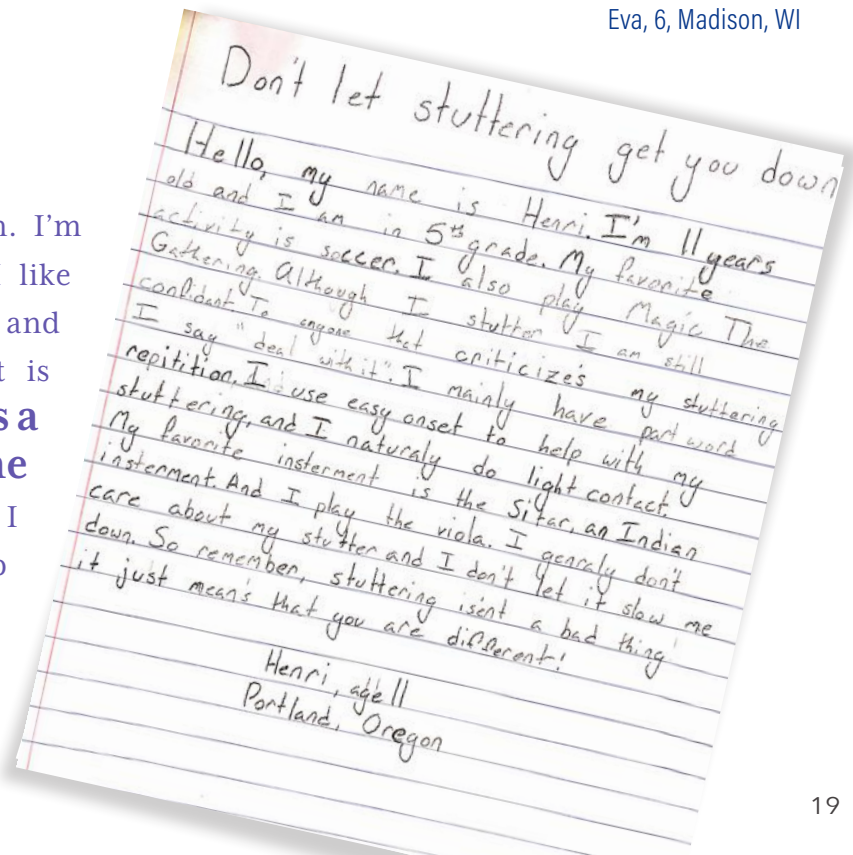 Eva, 6, Madison, WI
n. I'm
like
and
t is
s a
ne
I
o
Don't let stuttering get you down
Hello, my name is Henri. I'm 11 years
old and I am in 5th grade. My favorite
activity is soccer. I also play Magic The
Gathering. Although I stutter I am still
confidant. To anyone that criticize's my stuttering
I say "deal with it". I mainly have part word
repitition. I use easy onset to help with my
stuttering, and I naturaly do light contact.
My favorite insterment is the Sitar, an Indian
insterment. And I play the viola. I genraly don't
care about my stutter and I don't let it slow me
down. So remember, stuttering isen't a bad thing
it just mean's that you are different!
Henri, age 11
Portland, Oregon
19